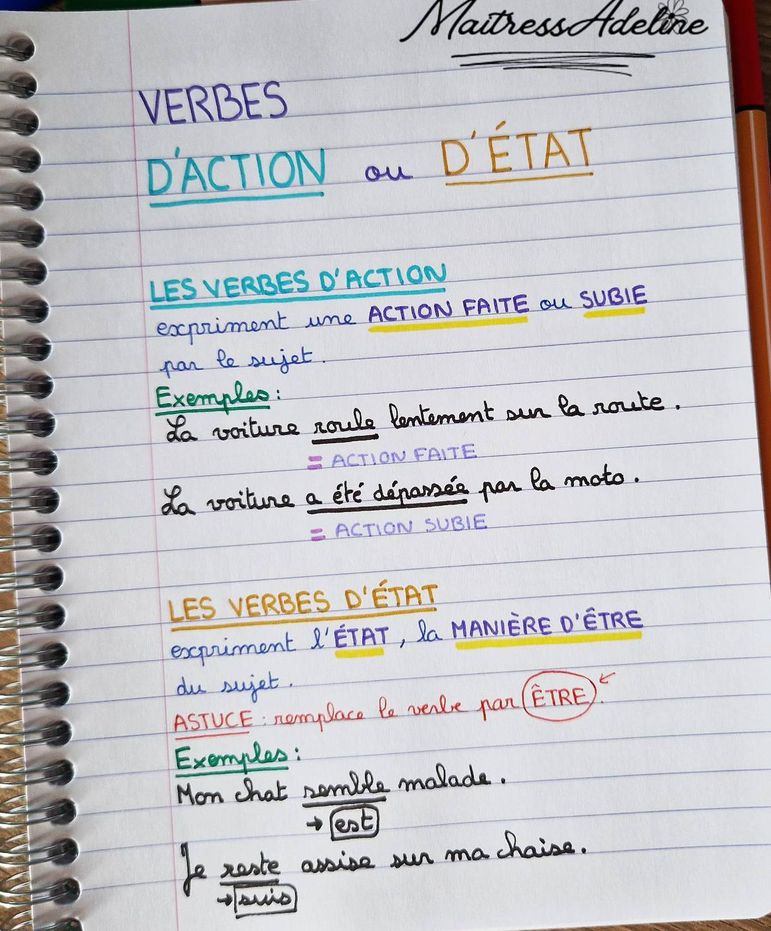 MaitressAdeline
VERBES
D'ACTION ou D'ÉTAT
LES VERBES D'ACTION
expriment une ACTION FAITE ou SUBIE
par le sujet.
Exemples :
La voiture roule lentement sur la route.
= ACTION FAITE
La voiture a été dépassée par la moto.
= ACTION SUBIE
LES VERBES D'ÉTAT
expriment l'ÉTAT, la MANIÈRE D'ÊTRE
du sujet.
ASTUCE : remplace le verbe par ÊTRE.
Exemples :
Mon chat semble malade.
→ est
Je reste assise sur ma chaise.
→ suis